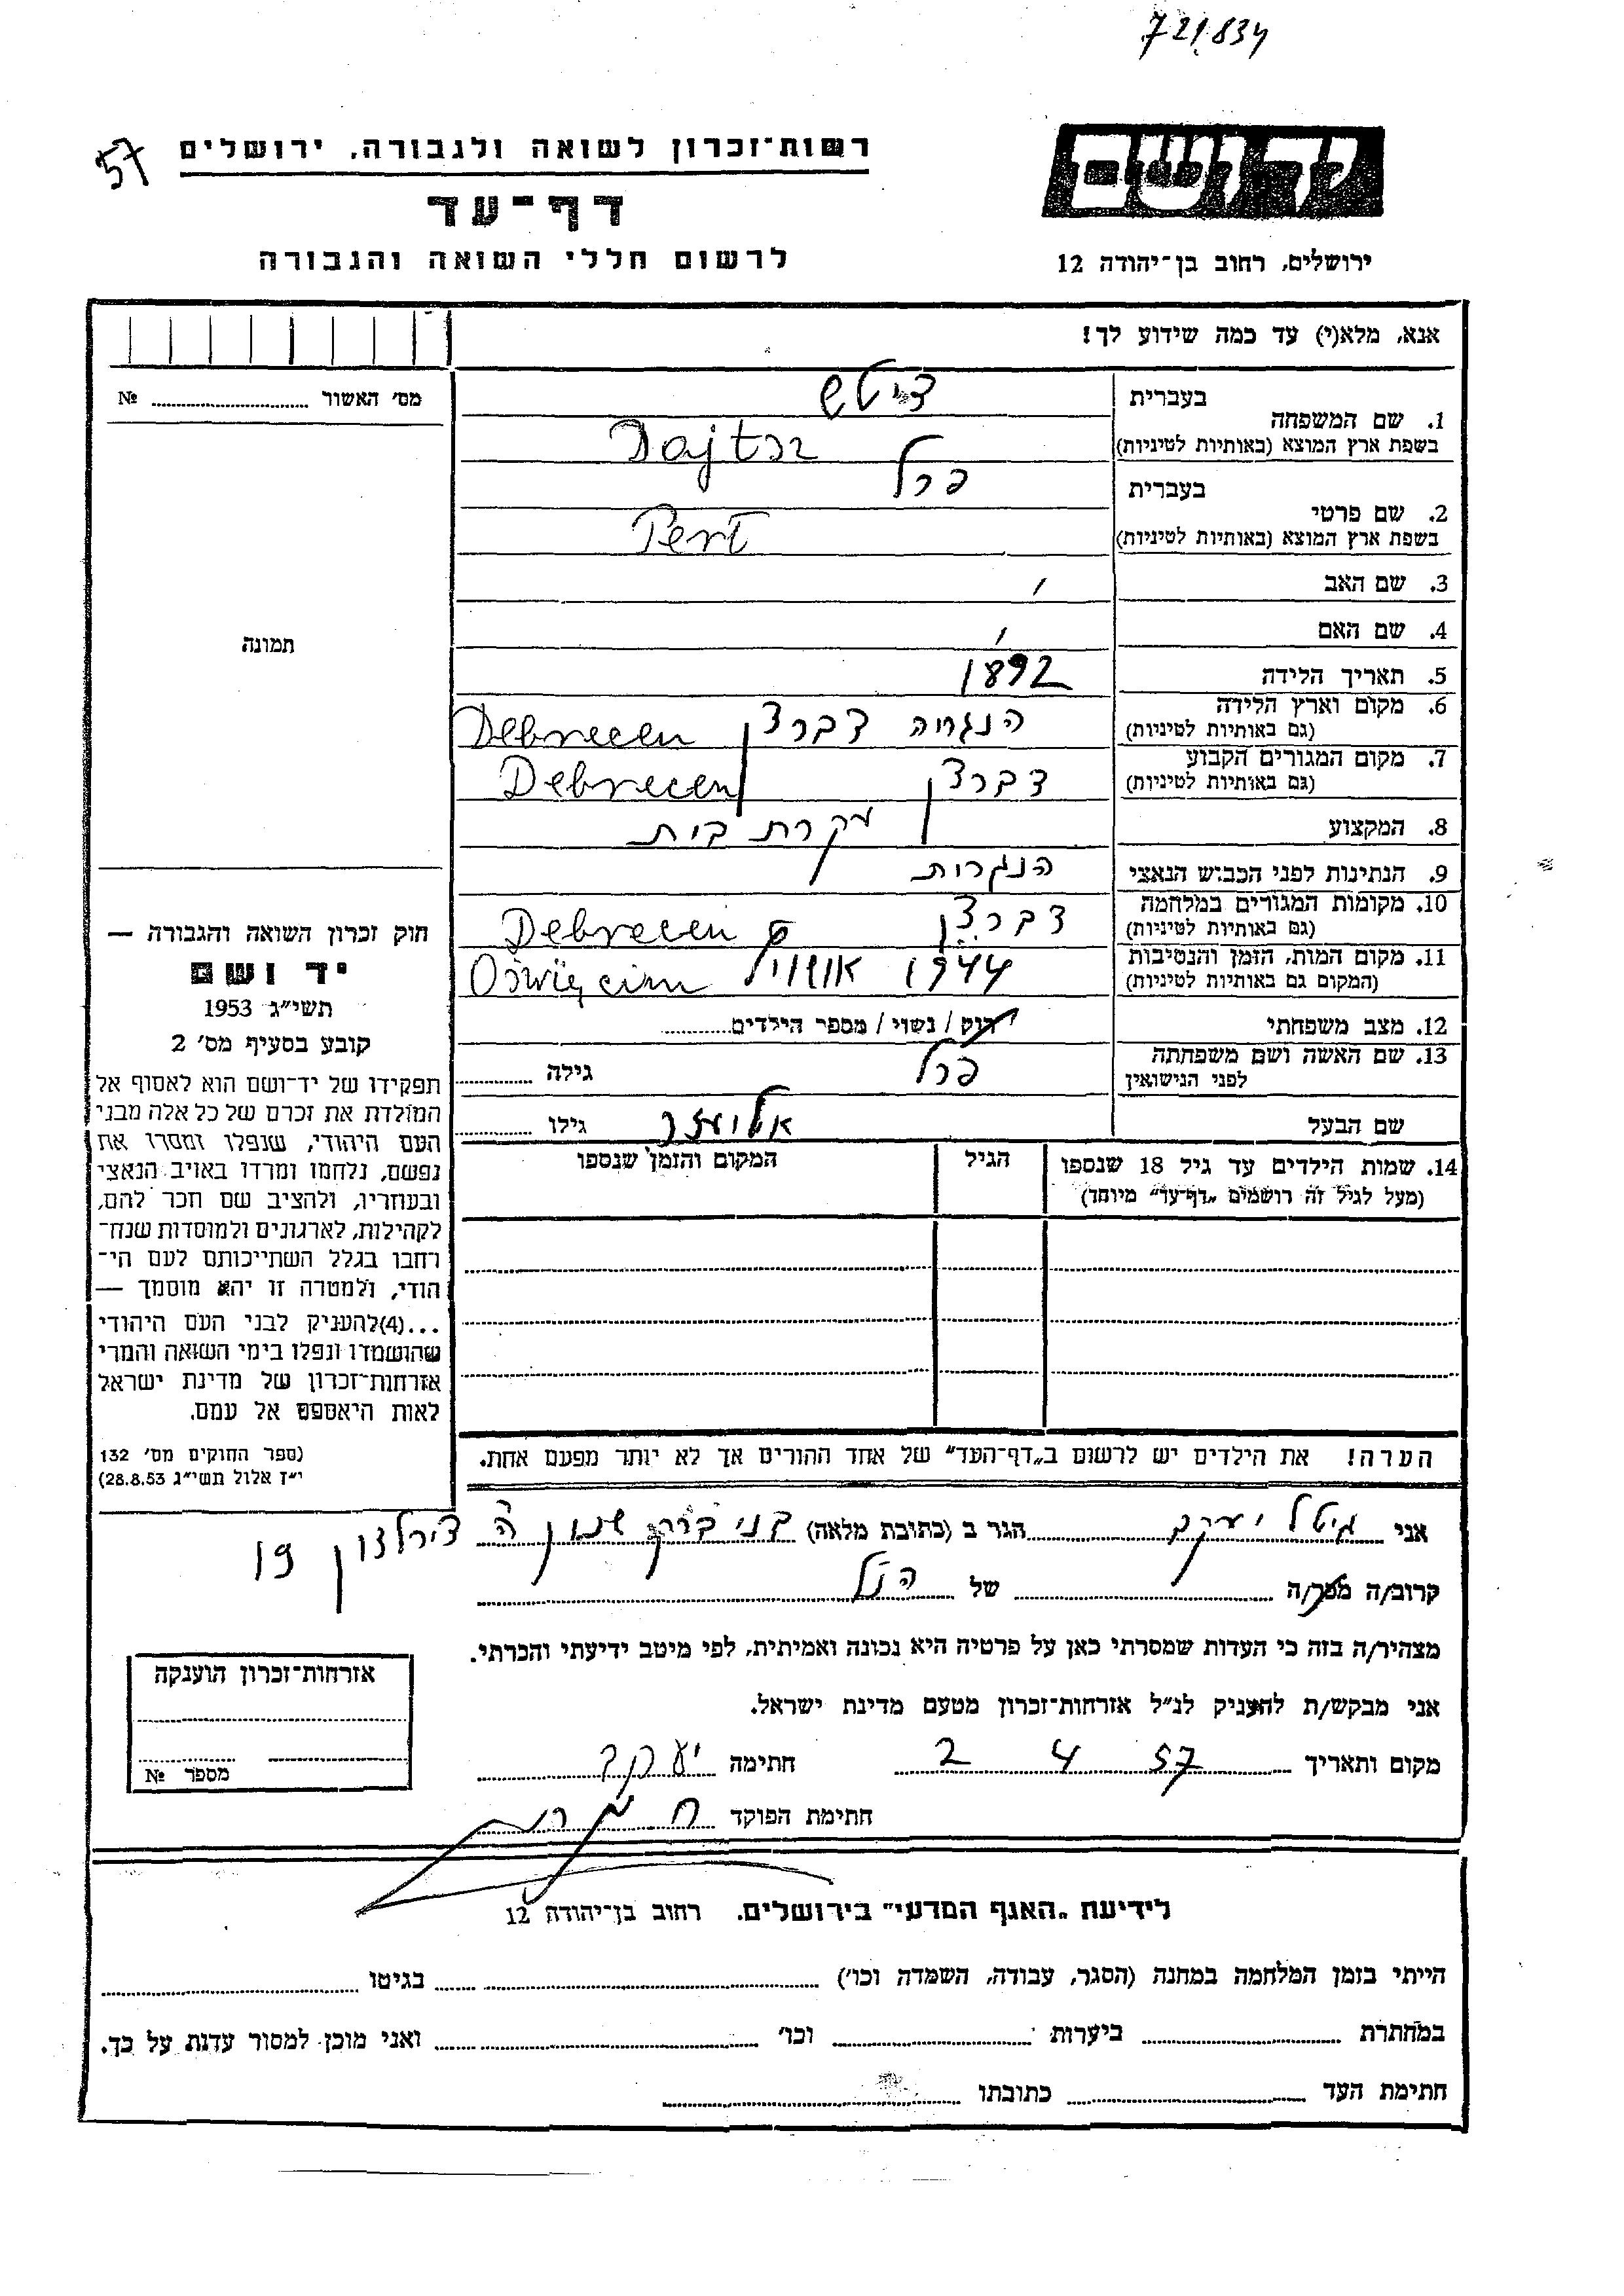 721.834
57
רשות־זכרון לשואה ולגבורה. ירושלים
ידושם
דף־עד
לרשום חללי השואה והגבורה
ירושלים, רחוב בן־יהודה 12
אנא, מלא(י) עד כמה שידוע לך!
מס׳ האשור № 
1. שם המשפחה
בעברית דיטש
בשפת ארץ המוצא (באותיות לטיניות) Dajtsz
2. שם פרטי
בעברית פרל
בשפת ארץ המוצא (באותיות לטיניות) Perl
3. שם האב
4. שם האם
5. תאריך הלידה 1892
6. מקום וארץ הלידה הנגריה דברצן Debrecen
(גם באותיות לטיניות)
7. מקום המגורים הקבוע דברצן Debrecen
(גם באותיות לטיניות)
8. המקצוע עקרת בית
9. הנתינות לפני הכבוש הנאצי הנגרית
10. מקומות המגורים במלחמה דברצן Debrecen
(גם באותיות לטיניות)
11. מקום המות, הזמן והנסיבות 1944 Oświęcim
(המקום גם באותיות לטיניות)
12. מצב משפחתי רוק / נשוי / מספר הילדים
13. שם האשה ושם משפחתה פרל גילה
לפני הנישואין
שם הבעל אליעזר גילו
14. שמות הילדים עד גיל 18 שנספו הגיל המקום והזמן שנספו
(מעל לגיל זה רושמים „דף־עד” מיוחד)
הערה! את הילדים יש לרשום ב„דף־העד” של אחד ההורים אך לא יותר מפעם אחת.
תמונה
חוק זכרון השואה והגבורה —
יד ושם
תשי״ג 1953
קובע בסעיף מס׳ 2
תפקידו של יד־ושם הוא לאסוף אל
המולדת את זכרם של כל אלה מבני
העם היהודי, שנפלו ומסרו את
נפשם, נלחמו ומרדו באויב הנאצי
ובעוזריו, ולהציב שם וזכר להם,
לקהילות, לארגונים ולמוסדות שנח־
רחבו בגלל השתייכותם לעם הי־
הודי, ולמטרה זו יהא מוסמך —
...(4)להעניק לבני העם היהודי
שהושמדו ונפלו בימי השואה והמרי
אזרחות־זכרון של מדינת ישראל
לאות היאספם אל עמם.
(ספר החוקים מס׳ 132
י״ז אלול תשי״ג 28.8.53)
אני גיטל יעקב הגר ב (כתובת מלאה) בני ברק 19
קרוב/ה מכר/ה של הנ״ל
מצהיר/ה בזה כי העדות שמסרתי כאן על פרטיה היא נכונה ואמיתית, לפי מיטב ידיעתי והכרתי.
אני מבקש/ת להעניק לנ״ל אזרחות־זכרון מטעם מדינת ישראל.
מקום ותאריך 57 4 2 חתימה יעקב
חתימת הפוקד
אזרחות־זכרון הוענקה
מספר №
לידיעת „האגף המדעי” בירושלים. רחוב בן־יהודה 12
הייתי בזמן המלחמה במחנה (הסגר, עבודה, השמדה וכו׳) בגיטו
במחתרת ביערות וכו׳ ואני מוכן למסור עדות על כך.
חתימת העד כתובתו